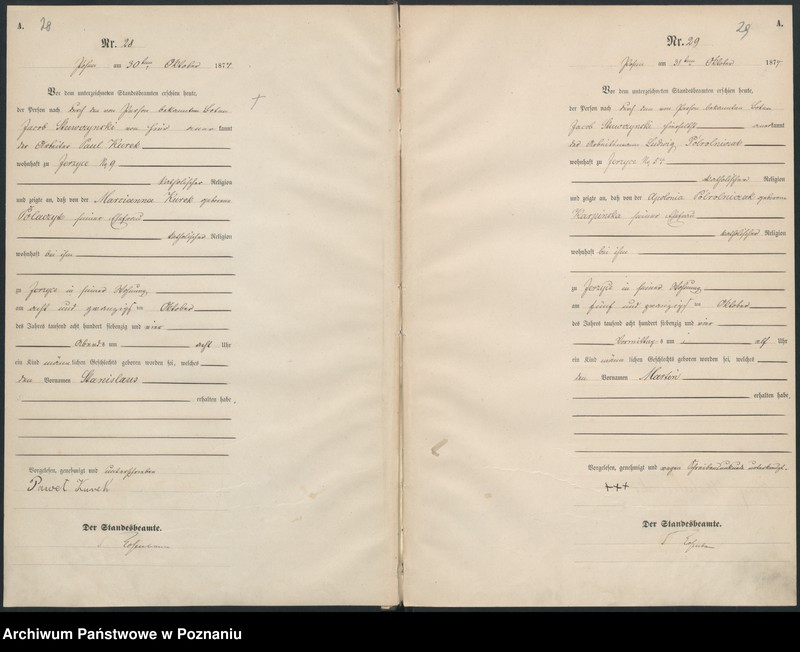 A. 28
Nr. 28
Posen am 30 ten Oktober 1874
Vor dem unterzeichneten Standesbeamten erschien heute,
der Person nach durch den von Person bekannten Boten
Jacob von hier anerkannt
der Arbeiter Paul Kurek
wohnhaft zu Jerzyce No 9
katholischer Religion
und zeigte an, daß von der Marcianna Kurek geborene
seiner Ehefrau
katholischer Religion
wohnhaft bei ihm
zu Jerzyce in seiner Wohnung
am acht und zwanzigsten Oktober
des Jahres tausend acht hundert siebenzig und vier
Abends um acht Uhr
ein Kind männlichen Geschlechts geboren worden sei, welches
den Vornamen Stanislaus
erhalten habe.
Vorgelesen, genehmigt und unterschrieben
Paweł Kurek
Der Standesbeamte.
29 A.
Nr. 29
Posen am 31 ten Oktober 1874
Vor dem unterzeichneten Standesbeamten erschien heute,
der Person nach durch den von Person bekannten Boten
Jacob anerkannt
Ludwig Półrolniczak
wohnhaft zu Jerzyce No
katholischer Religion
und zeigte an, daß von der Apolonia Półrolniczak geborene
Karpinska seiner Ehefrau
katholischer Religion
wohnhaft bei ihm
zu Jerzyce in seiner Wohnung
am fünf und zwanzigsten Oktober
des Jahres tausend acht hundert siebenzig und vier
Vormittags um elf Uhr
ein Kind männlichen Geschlechts geboren worden sei, welches
den Vornamen Martin
erhalten habe.
Vorgelesen, genehmigt und wegen Schreibensunkunde unterkreuzt.
+++
Der Standesbeamte.
Archiwum Państwowe w Poznaniu